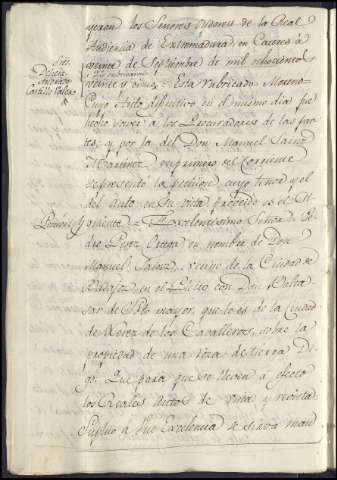 yeron los Señores Oidores de la Real
Audiencia de Extremadura, en Caceres á
veinte de Septiembre de mil ochocientos
veinte y
Esta rubricado Moreno
Cuyo Auto difinitivo en el mismo dia fue
hecho saver á los Procuradores de las par-
tes; y por la del Don Manuel Sainz
Martinez, en primero del Corriente
se presentó la peticion, cuyo tenor y el
del auto en su vista proveido es el si-
Peticion
guiente = Excelentisimo Señor = Pe-
dro Perez Ortega en nombre de Don
Manuel Sainz, vecino de la Ciudad de
Badajoz en el Pleito con Don Balta-
sar de Soto mayor, que lo es de la Ciudad
de Xerez de los Cavalleros, sobre la
propiedad de una de tierra Di-
go: Que para que se lleven á efecto
los Reales Autos de vista y revista
Suplico á Vue Excelencia se sirva man